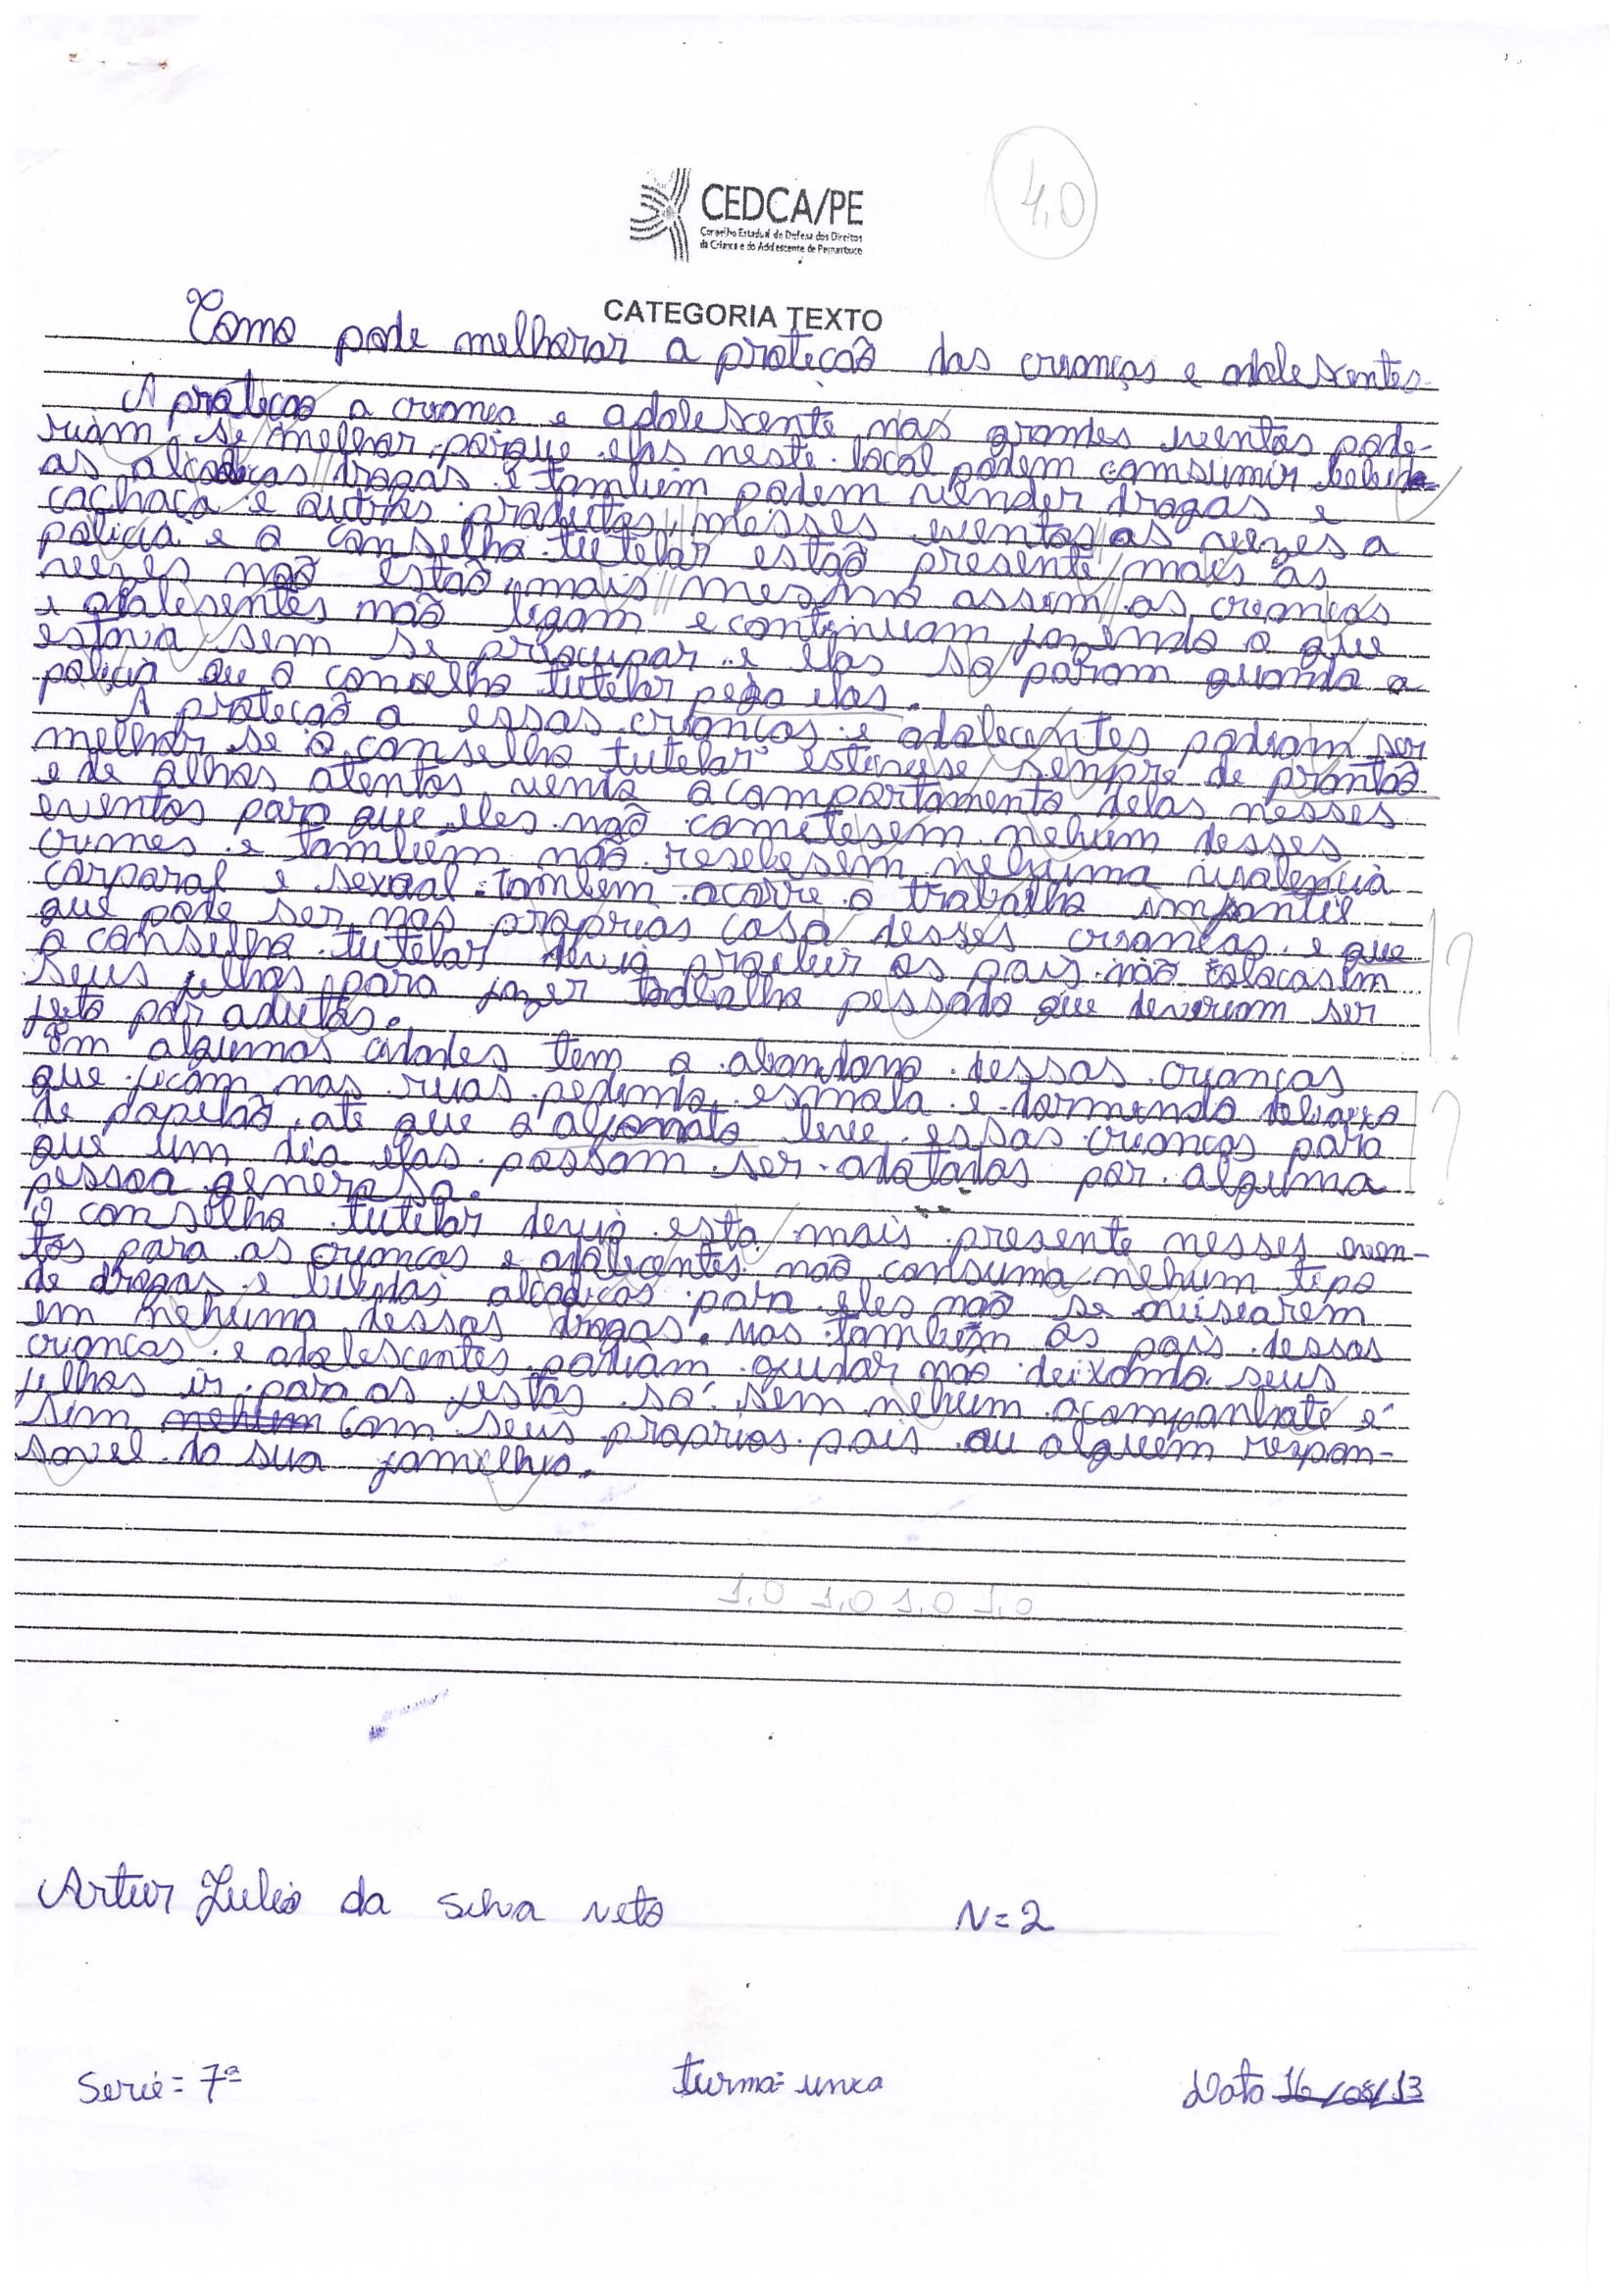 4,0
CEDCA/PE
Conselho Estadual de Defesa dos Direitos
da Criança e do Adolescente de Pernambuco
CATEGORIA TEXTO
Como pode melhorar a proteção das crianças e adolescentes
A proteçao a criança e adolescente nas grandes eventos pode-
riam se melhor porque elas neste local podem comsumir bebida-
as alcoolicas drogas e tambem podem vender drogas e
cachaça e outros produtos, nesses eventos as vezes a
policia e o conselho tutelar estão presente mais as
vezes não estão, mais mesmo assim as crianças
e adolesentes não ligam e continuam fazendo o que
estava sem se priocupar e elas so param quando a
policia ou o concelho tutelar pega elas.
A proteção a essas crianças e adolecentes podiam ser
melhor se o conselho tutelar estivese senpre de prontão
e de olhos atentos vendo o compartamento delas nesses
eventos para que eles não cometesem nehum desses
crimes e tambem não resebesem nehuma violencia
corporal e sexual. tambem ocorre o trabalho imfantil
que pode ser nas proprias casa desses crianças e que
o conselho tutelar devia proibir os pais não colocasem
seus filhos para fazer trabalho pessado que deveriam ser
feto por adultos.
Em algumas cidades tem o abandono dessas crianças
que ficam nas ruas pedindo esmola e dormindo debaixo
de papelão até que o alfonato leve essas crianças para
que um dia elas possam ser adotadas por alguma
pessoa generosa.
O conselho tutelar devia esta mais presente nesses even-
tos para as crianças e adolecentes não consuma nehum tipo
de drogas e bebidas alcoolicas para eles não se viisiarem
em nehuma dessas drogas. Mas também os pais dessas
crianças e adolescentes podiam ajudar não deixando seus
filhos ir para as festas só sem nehum acompanhate e
sim com seus proprios pais ou alguem respon-
savel da sua familhia.
1,0 1,0 1,0 1,0
Artur Julio da Silva Neto N=2
Serie= 7ª turma= unica Data 16/08/13